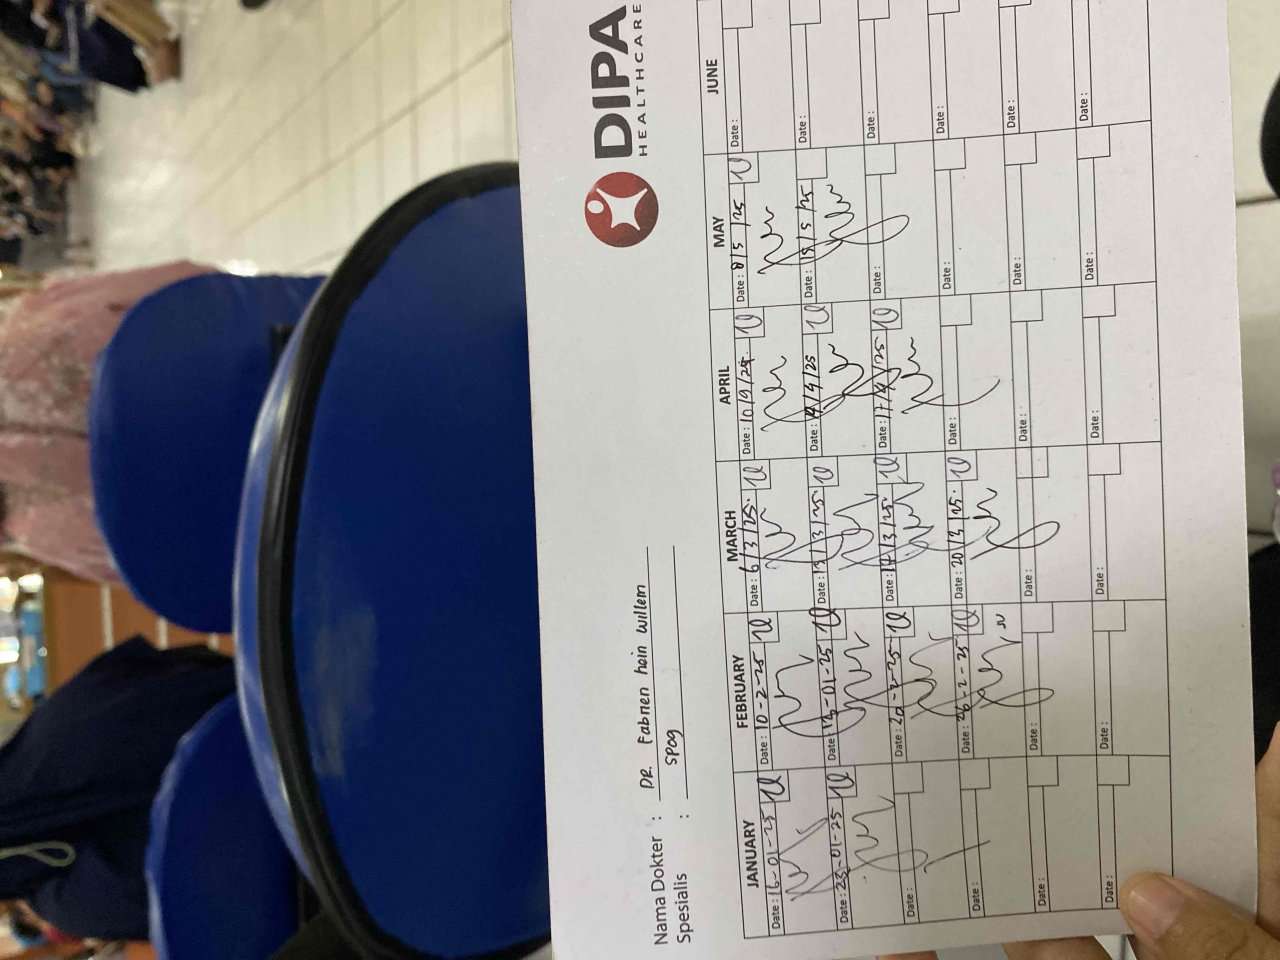 DIPA
HEALTHCARE
Nama Dokter : DR. Fabrien hein willem
Spesialis : SPOG
JANUARY FEBRUARY MARCH APRIL MAY JUNE
Date: 16-01-25 Date: 10-2-25 Date: 6/3/25. Date: 10/4/25 Date: 8/5/25 Date:
Date: 23-01-25 Date: 13-01-25 Date: 13/3/25. Date: /4/25 Date: 15/5/25 Date:
Date: Date: 20-2-25 Date: 17/3/25. Date: 17/4/25 Date: Date:
Date: Date: 26-2-25 Date: 20/3/25. Date: Date: Date:
Date: Date: Date: Date: Date: Date:
Date: Date: Date: Date: Date: Date: